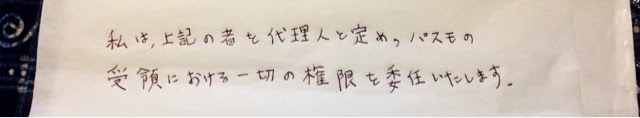 私は、上記の者を代理人と定め、パスモの
受領における一切の権限を委任いたします。